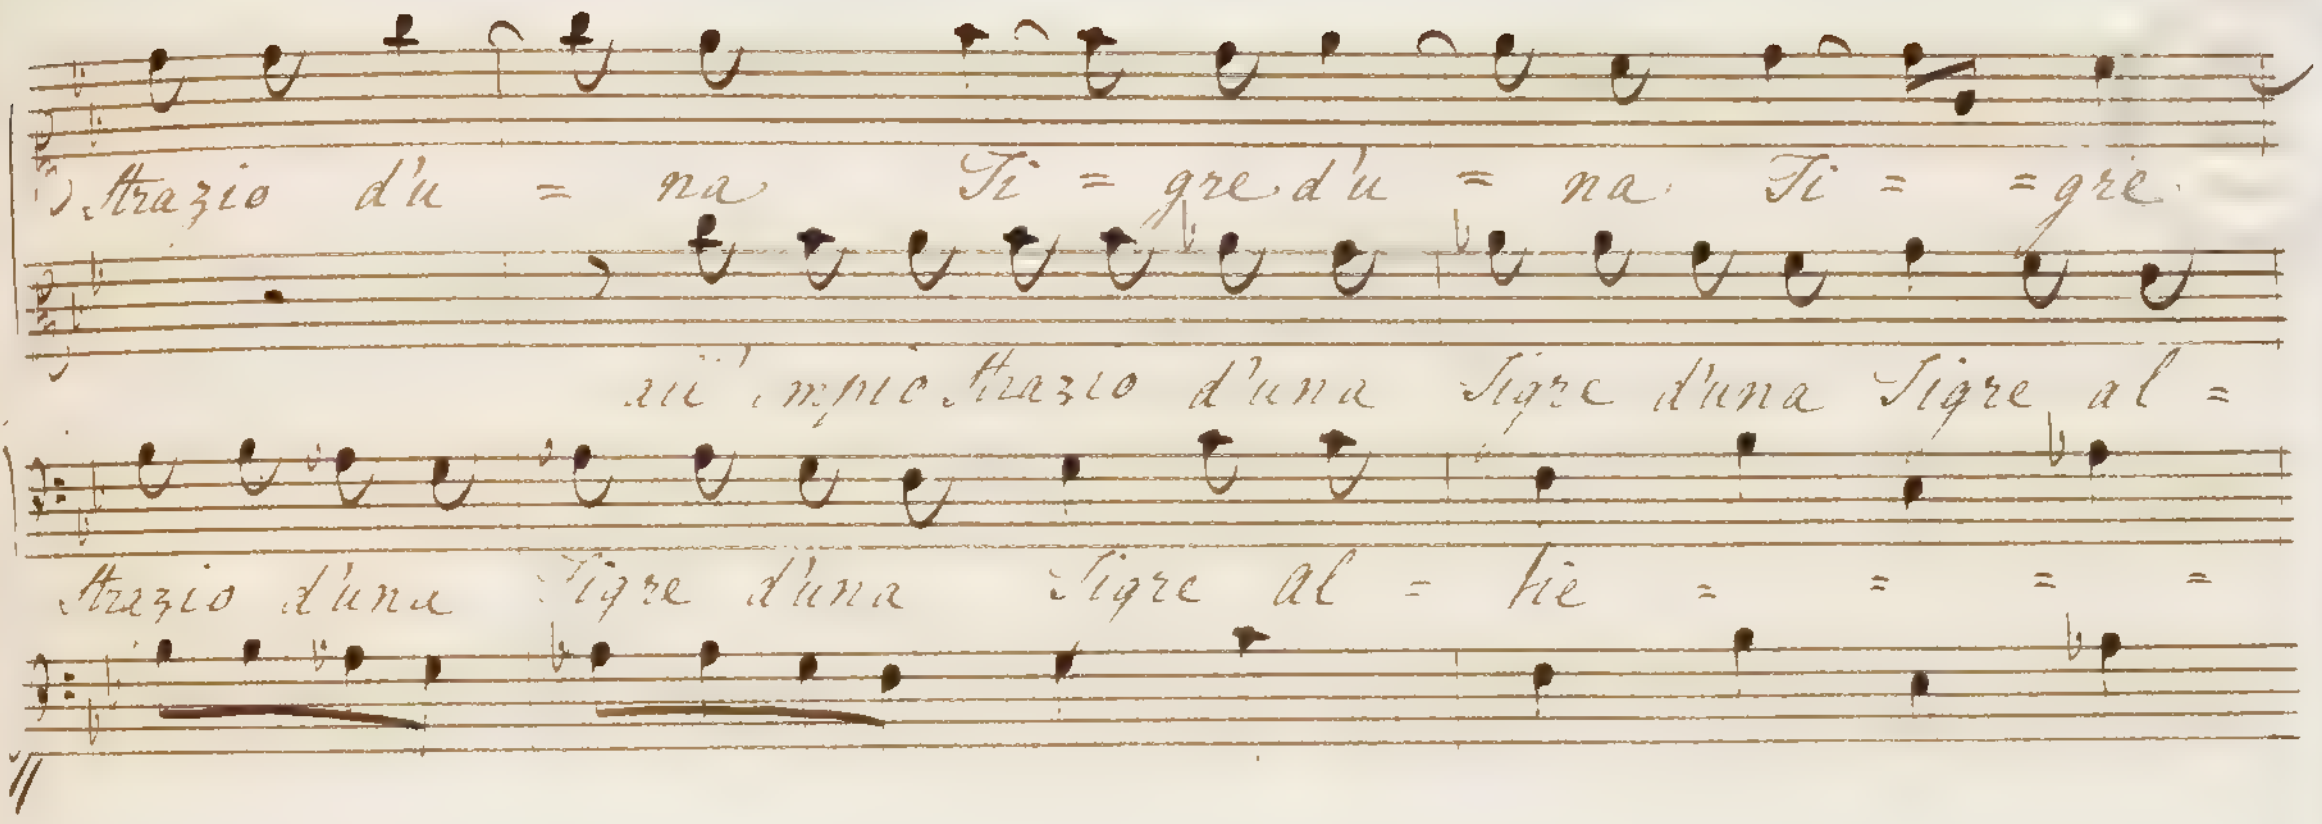 Strazio d'u = na Ti = gre d'u = na Ti = = gre
all' empio Strazio d'una Tigre d'una Tigre al =
Strazio d'una Tigre d'una Tigre al = tie = = = =